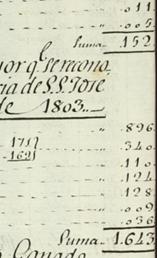 011
005
Suma 152
yor q.e se recono
ria de S.S. Jose
de 1803
896
171 340
1621 110
124
128
009
036
Suma 1.643
Canada